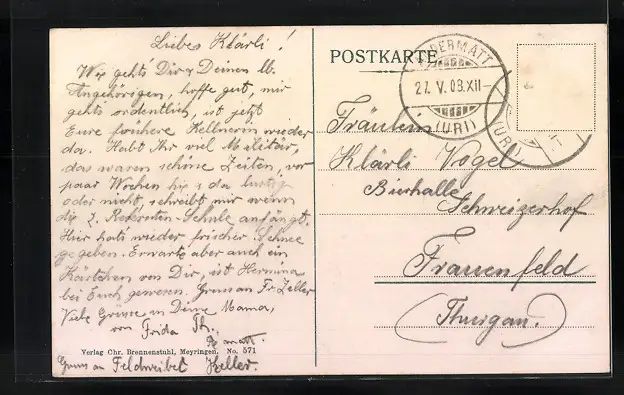 Liebes Klärli!
Wie gehts Dir & Deinen lb.
Angehörigen, hoffe gut, mir
gehts ordentlich, ist jetzt
Eure frühere Kellnerin wieder
da. Habt Ihr viel Militär,
das waren schöne Zeiten, vor
paar Wochen hie & da lustig
oder nicht, schreibt mir wenn
die 2. Rekruten-Schule anfängt.
Hier hats wieder frischer Schnee
gegeben. Erwarte aber auch ein
Kärtchen von Dir, ist Hermina
bei Euch gewesen. Gruss an Fr. Zeller
Viele Grüsse an Deine Mama,
von Frida Th.
matt.
Verlag Chr. Brennenstuhl, Meyringen. No. 571
Gruss an Feldweibel Keller.
POSTKARTE
ANDERMATT
27. V. 08. XII
(URI)
(URI)
Fräulein
Klärli Vogel
Bierhalle
Schweizerhof
Frauenfeld
(Thurgau.)